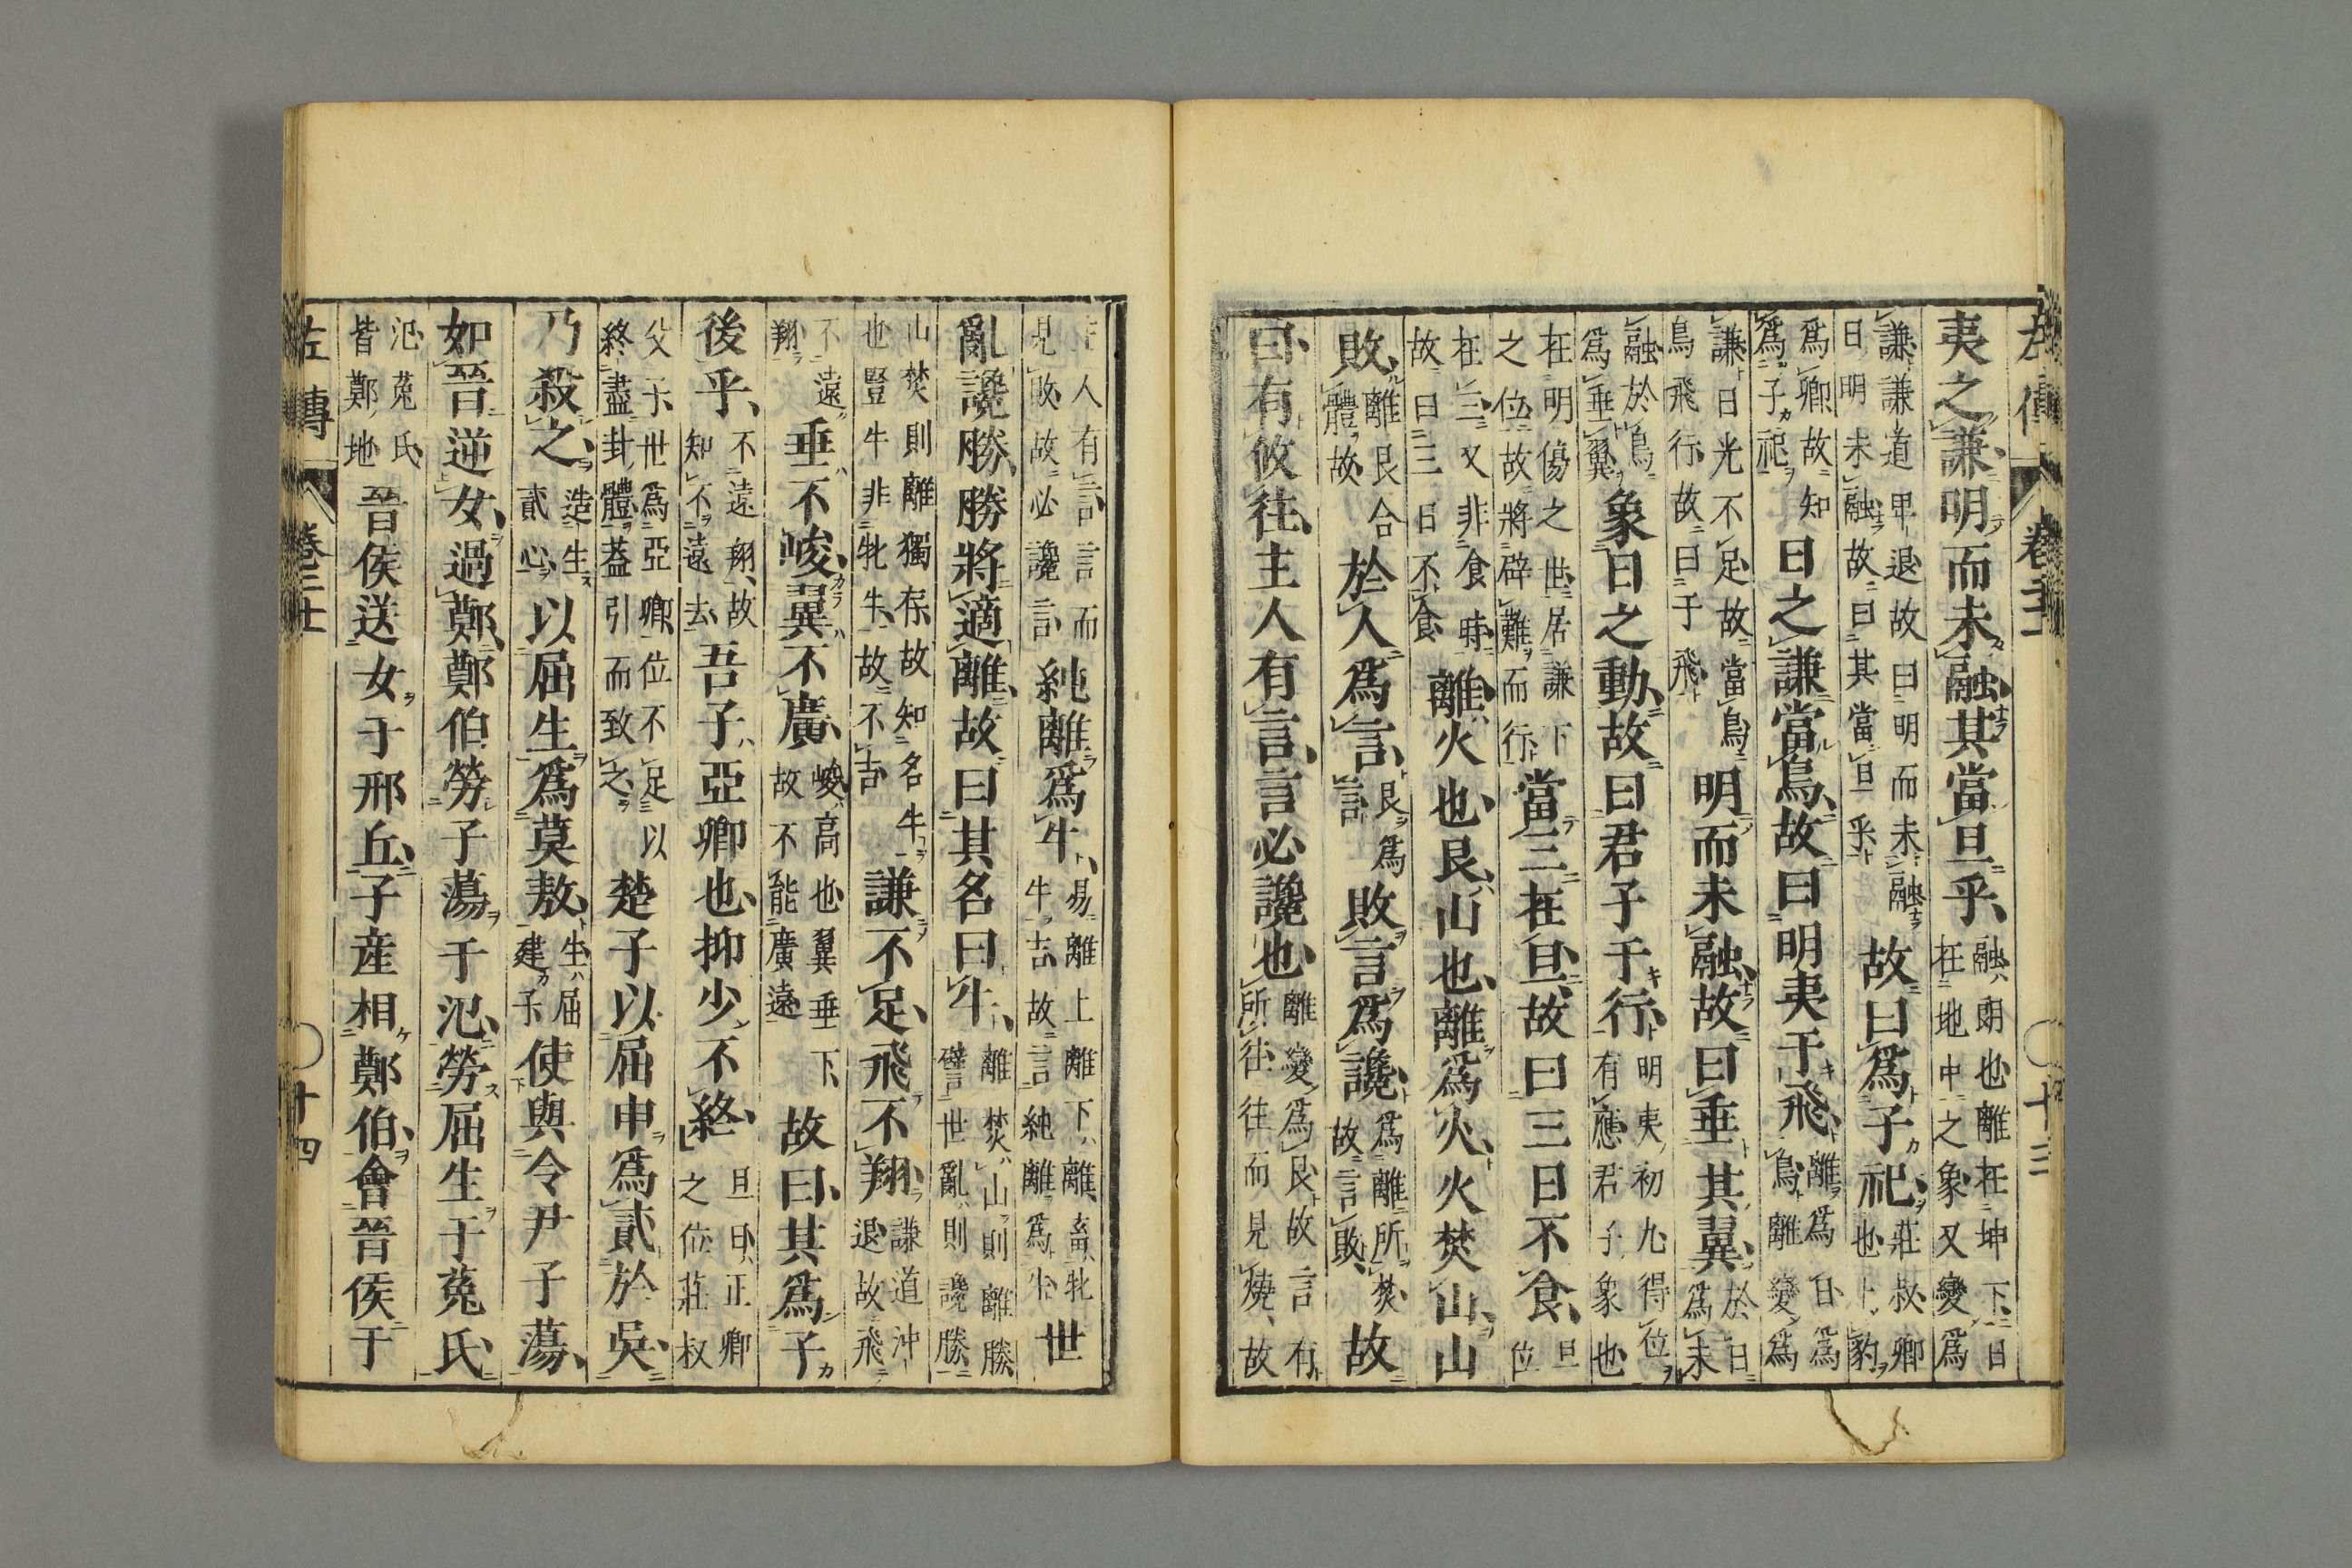 左傳 卷二十一 ○十三
夷之謙明而未融其當旦乎融朗也離在坤下日在地中之象又變爲
謙謙道卑退故曰明而未融日明未融故曰其當旦乎故曰爲子祀莊叔卿也卜豹
爲卿故知爲子祀日之謙當鳥故曰明夷于飛離爲日爲鳥離變爲
謙日光不足故當鳥鳥飛行故曰于飛明而未融故曰垂其翼於日爲未
融於鳥爲垂翼象日之動故曰君子于行明夷初九得位有應君子象也
在明傷之世居謙下之位故將辟難而行當三在旦故曰三日不食旦位
在三又非食時故曰三日不食離火也艮山也離爲火火焚山山
敗離艮合體故於人爲言艮爲言敗言爲讒爲離所焚故言敗故
曰有攸往主人有言言必讒也離變爲艮故言有所往往而見燒故
主人有言言而見敗故必讒言純離爲牛易離上離下離畜牝牛吉故言純離爲牛世
亂讒勝勝將適離故曰其名曰牛離焚山則離勝譬世亂則讒勝
山焚則離獨存故知名牛也豎牛非牝牛故不吉謙不足飛不翔謙道沖退故飛
不遠翔垂不峻翼不廣峻高也翼垂下故不能廣遠故曰其爲子
後乎不遠翔故知不遠去吾子亞卿也抑少不終旦日正卿之位莊叔
父子世爲亞卿位不足以終盡卦體蓋引而致之楚子以屈申爲貳於吳
乃殺之造生貳心以屈生爲莫敖生屈建子使與令尹子蕩
如晉逆女過鄭鄭伯勞子蕩于氾勞屈生于菟氏
氾菟氏皆鄭地晉侯送女于邢丘子産相鄭伯會晉侯于
左傳 卷二十一 ○十四